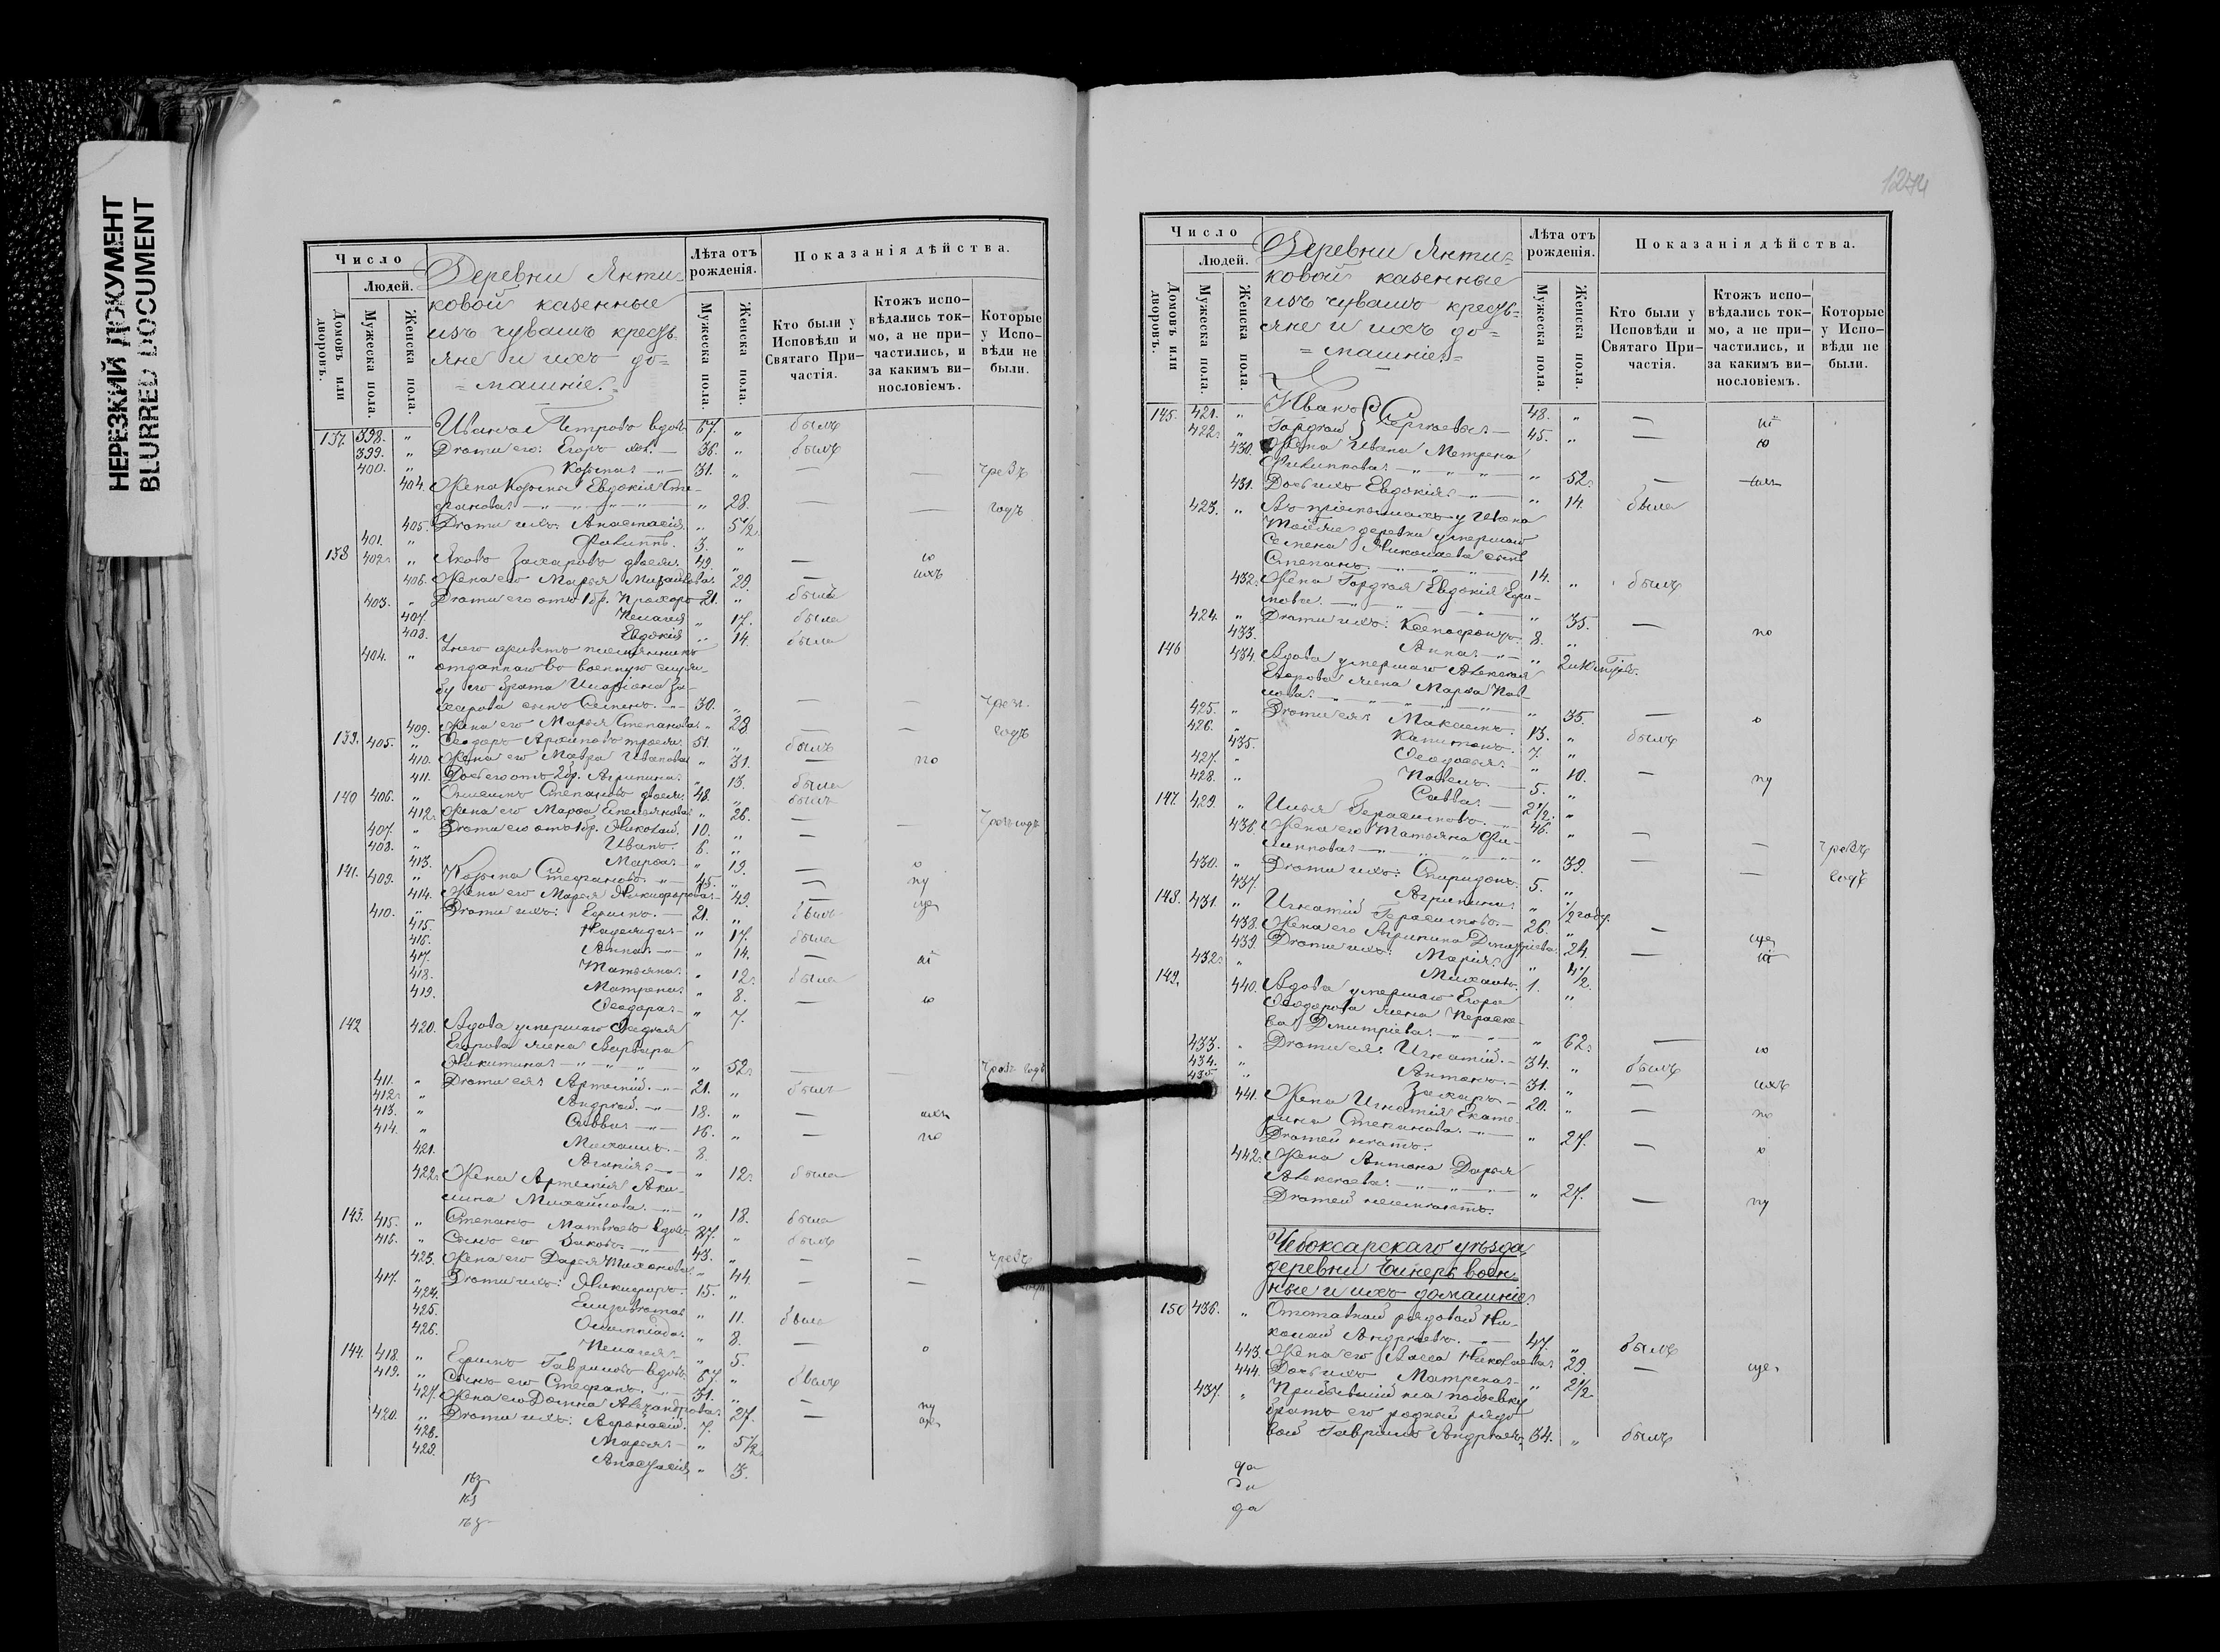 НЕРЕЗКИЙ ДОКУМЕНТ
BLURRED DOCUMENT
Число
Людей.
Домовъ или дворовъ.
Мужеска пола.
Женска пола.
Деревни Янти=
ковой казенные
изъ чувашъ кресть
яне и ихъ до=
=машніе.=
Лѣта отъ рожденія.
Мужеска пола.
Женска пола.
Показанія дѣйства.
Кто были у Исповѣди и Святаго При-частія.
Ктожъ испо-вѣдались ток-мо, а не при-частились, и за какимъ ви-нословіемъ.
Которые у Испо-вѣди не были.
137. 398. " Петровъ вдов. 67. " былъ
399. " Дѣти его: Егоръ 36. " былъ
400. " Козьма 31. " — — чрезъ
404. Жена Козьмы Евдокія Сте-
фанова " 28. — — годъ
405. Дѣти ихъ: Анастасія. " 5 1/2
401. " Филиппъ. 3. "
138 402. " Яковъ Захаровъ 49. " —
406. Жена его Марья Михайлова 29. — ихъ
403. " Дѣти его отъ 1 бр. Прохоръ 21. " былъ
407. Пелагія " 17. была
408. Евдокія " 14. была
404. " У него племянникъ
отданнаго въ военную служ-
бу его брата Иларіона За-
харова сынъ Семенъ. 30. " — — чрезъ
409. Жена его Марья Степанова " 28 — — годъ
139. 405. " Ѳеодоръ Архиповъ 51. " былъ
410. Жена его Мавра Иванова " 31. — по
411. Дочь его отъ 2 бр. Агрипина. " 13. была
140 406. " Степановъ 48. " былъ
412. Жена его Марѳа Емельянова " 26. — — Чрезъ годъ
407. " Дѣти его отъ 1 бр. Николай. 10. " —
408. " Иванъ. 6. "
413. Марѳа " 19. —
141. 409. " Козьма Стефановъ. 45. " — пу
414. Жена его Марья Никифорова " 49. —
410. " Дѣти ихъ: Ефимъ. 21. " былъ
415. Надежда " 17. была
416. Анна " 14. —
417. Татьяна " 12. была
418. Матрена " 8. —
419. Ѳеодора " 7.
142 420. Вдова умершаго Андрея
Егорова жена Варвара
Никитина " 52. — — Чрезъ годъ
411. " Дѣти ея: Артемій. 21. " былъ
412. " Андрей. 18. " — ихъ
413. " Савва 16. " — по
414. " Михаилъ. 8.
421. Аганія " 12. была
422. Жена Артемія Аку-
лина Михайлова. " 18. была
143. 415. " Степанъ Матвѣевъ вдов. 87. " былъ
416. " Сынъ его Яковъ. 43. " — — чрезъ
423. Жена его Дарья Тихонова " 44 — —
417. " Дѣти ихъ: Никифоръ. 15. "
424. Елизавета " 11. была
425. Олимпіада. " 8. —
426. Пелагія " 5.
144. 418. " Ефимъ Гавриловъ вдовъ. 67. " былъ
419. " Сынъ его Стефанъ. 31. " — пу
427. Жена его Домна Александрова. " 27. —
420. " Дѣти ихъ: Аѳанасій. 7. "
428. Марья " 5 1/2
429. Анастасія " 3.
1274
Число
Людей.
Домовъ или дворовъ.
Мужеска пола.
Женска пола.
Деревни Янти=
ковой казенные
изъ чувашъ кресть=
яне и ихъ до=
=машніе=
Лѣта отъ рожденія.
Мужеска пола.
Женска пола.
Показанія дѣйства.
Кто были у Исповѣди и Святаго При-частія.
Ктожъ испо-вѣдались ток-мо, а не при-частились, и за какимъ ви-нословіемъ.
Которые у Испо-вѣди не были.
145. 421. " Иванъ } Сергѣевы 48. " —
422. " Гордѣй 45. " —
430. Жена Ивана Матрена
Филиппова " 52. —
431. Дочь ихъ Евдокія. " 14. была
423. " Въ пріемышахъ у Ивана
Тойже деревни умершаго
Семена Николаева сынъ
Степанъ. 14. " былъ
432. Жена Гордѣя Евдокія Ефи-
мова. " 35. — по
424. " Дѣти ихъ: Ксенофонтъ. 8. "
433. Анна "
146 434. Вдова умершаго Алексѣя
Егорова жена Марѳа Пав-
лова. " 35. —
425. " Дѣти ея: Максимъ. 13. " былъ
426. " Капитонъ. 7. "
435. Ѳеодосья. " 10. — пу
427. " Павелъ. 5. "
428. " Савва. 2 1/2. "
147. 429. " Илья Герасимовъ. 46. " — — чрезъ
436. Жена его Татьяна Фи-
липпова " 39. — — годъ
430. " Дѣти ихъ: Спиридонъ. 5. "
437. Агрипина " 1/2 году.
148. 431. " Игнатій Герасимовъ 26. " —
438. Жена его Агрипина Дмитріева. 24. —
439. Дѣти ихъ: Марія. " 4 1/2.
432. " Михаилъ. 1. "
149. 440. Вдова умершаго Егора
Ѳеодорова жена Параске-
ва Дмитріева. " 62. —
433. " Дѣти ея: Игнатій. 34. " былъ
434. " Антонъ. 31. " — ихъ
435. " Захаръ 20. " — по
441. Жена Игнатія Екате-
рина Степанова. " 27. —
Дѣтей нѣтъ.
442. Жена Антона Дарья
Алексѣева. " 27. — пу
Дѣтей
Чебоксарскаго уѣзда
деревни военн-
ные и ихъ домашніе.
150 436. " Отставной рядовой Ни-
колай Андреевъ. 47. " былъ
443. Жена его Васса Николаева. 29. —
444. Дочь ихъ Матрена " 2 1/2
437. " Прибывшій на побывку
братъ его родный рядо-
вой Гавріилъ Андреевъ. 34. " былъ